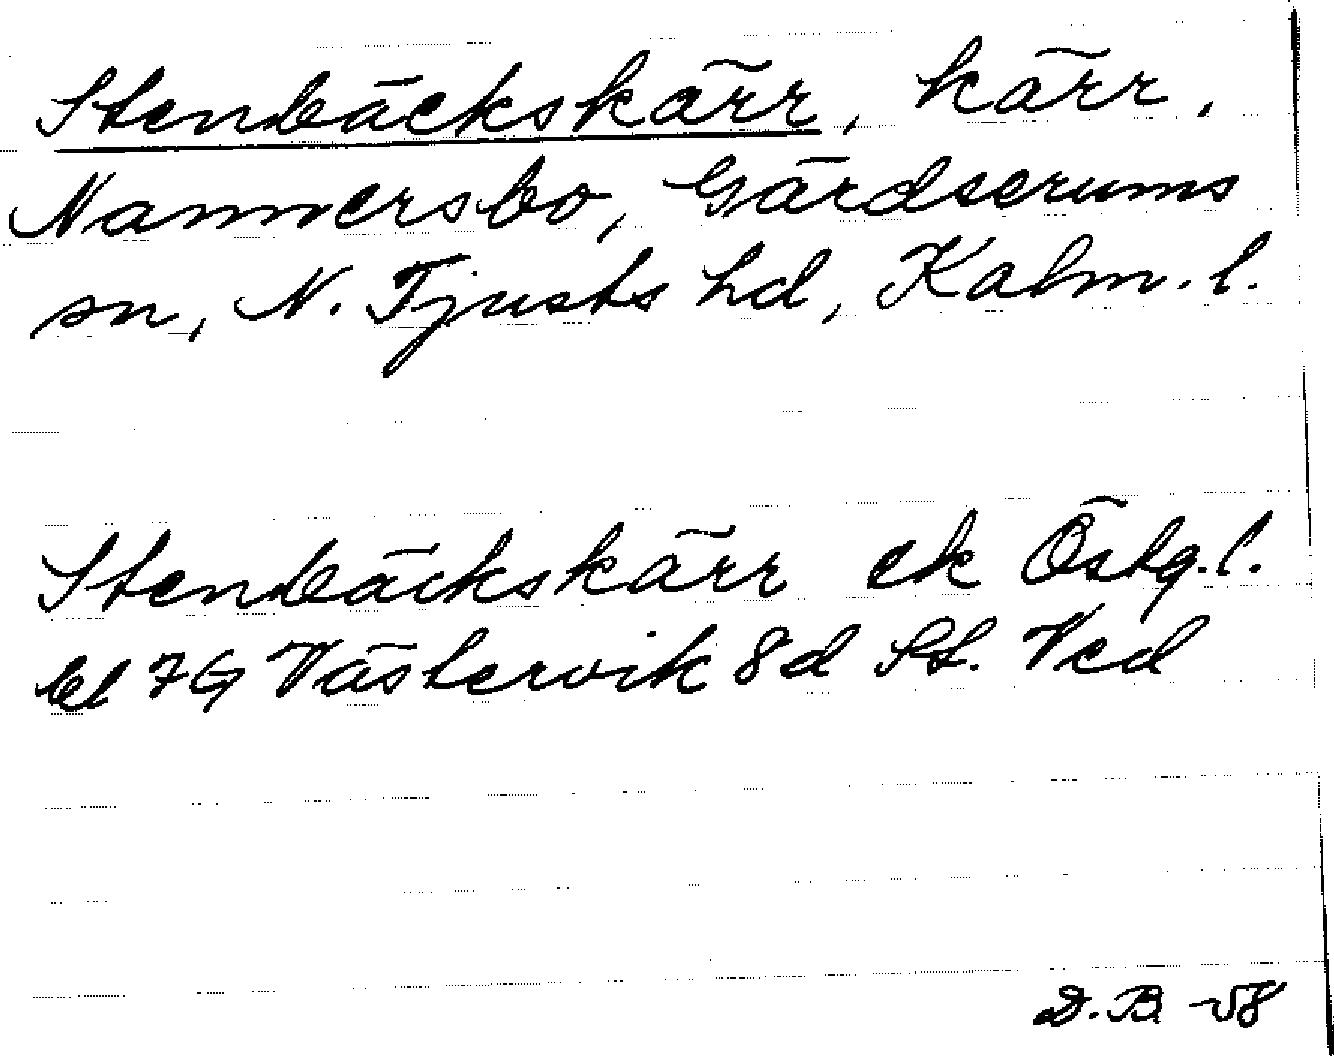 Stenbäckskärr, kärr,
Nannersbo, Gärdserums
sn, N. Tjusts hd, Kalm. l.
Stenbäckskärr ek Östg. l.
bl 7G Västervik 8d St. Ved
D. B -58